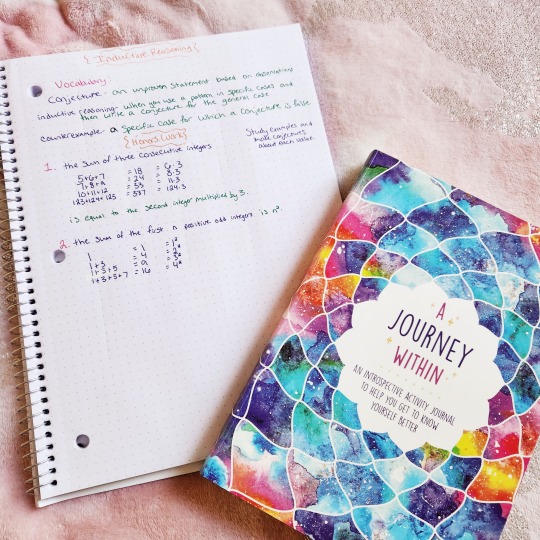 { Inductive Reasoning {
Vocabulary:
Conjecture- an unproven statement based on observations
inductive reasoning- when you use a pattern in specific cases and
then write a conjecture for the general case
counterexample- a specific case for which a conjecture is false
{ Honors Work {
Study examples and
make conjectures
about each value.
1. the sum of three consecutive integers
5+6+7 = 18 = 6·3
7+8+9 = 24 = 8·3
10+11+12 = 33 = 11·3
123+124+125 = 124·3
is equal to the second integer multiplied by 3.
2. the sum of the first n positive odd integers is n².
1 = 1 = 1²
1+3 = 4 = 2²
1+3+5 = 9 = 3²
1+3+5+7 = 16 = 4²
A
JOURNEY
WITHIN
AN INTROSPECTIVE ACTIVITY JOURNAL
TO HELP YOU GET TO KNOW
YOURSELF BETTER